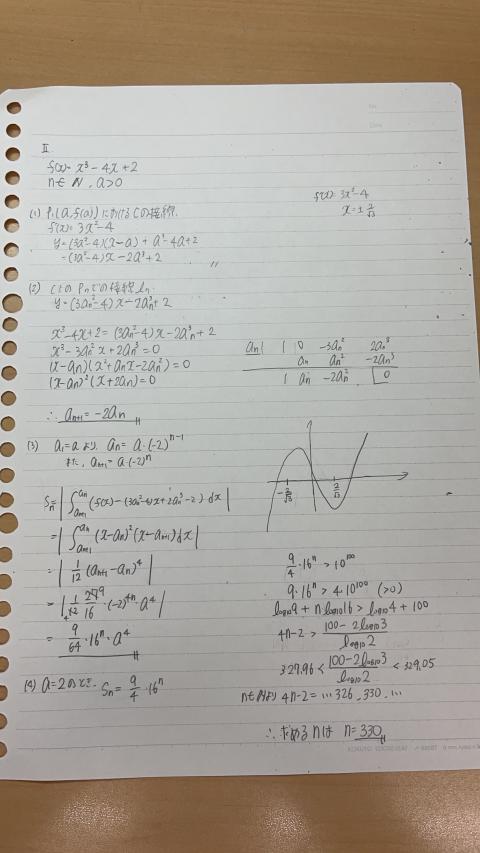 II
f(x) = x³ - 4x + 2
n ∈ N, a > 0
(1) P₁(a, f(a)) におけるCの接線.
f'(x) = 3x² - 4
y = (3a² - 4)(x - a) + a³ - 4a + 2
= (3a² - 4)x - 2a³ + 2
f'(x) = 3x² - 4
x = ± 2/√3
(2) CとのPnでの接線ln.
y = (3an² - 4)x - 2an³ + 2
x³ - 4x + 2 = (3an² - 4)x - 2an³ + 2
x³ - 3an²x + 2an³ = 0
(x - an)(x² + anx - 2an²) = 0
(x - an)²(x + 2an) = 0
an | 1 0 -3an² 2an³
an an² -2an³
1 an -2an² 0
∴ an+1 = -2an
(3) a₁ = a より, an = a・(-2)ⁿ⁻¹
また, an+1 = a・(-2)ⁿ
-2/√3 2/√3
= | ∫ (x - an)²(x - an+1) dx |
= | 1/12 (an+1 - an)⁴ |
= 9/64・16ⁿ・a⁴
(4) a = 2のとき. Sn = 9/4・16ⁿ
9/4・16ⁿ > 10¹⁰⁰
9・16ⁿ > 4・10¹⁰⁰ (>0)
log₁₀9 + n log₁₀16 > log₁₀4 + 100
4n - 2 > (100 - 2log₁₀3)/log₁₀2
329.96 < (100 - 2log₁₀3)/log₁₀2 < 329.05
n∈Nより 4n - 2 = … 326, 330, …
∴ 求めるnは n = 330